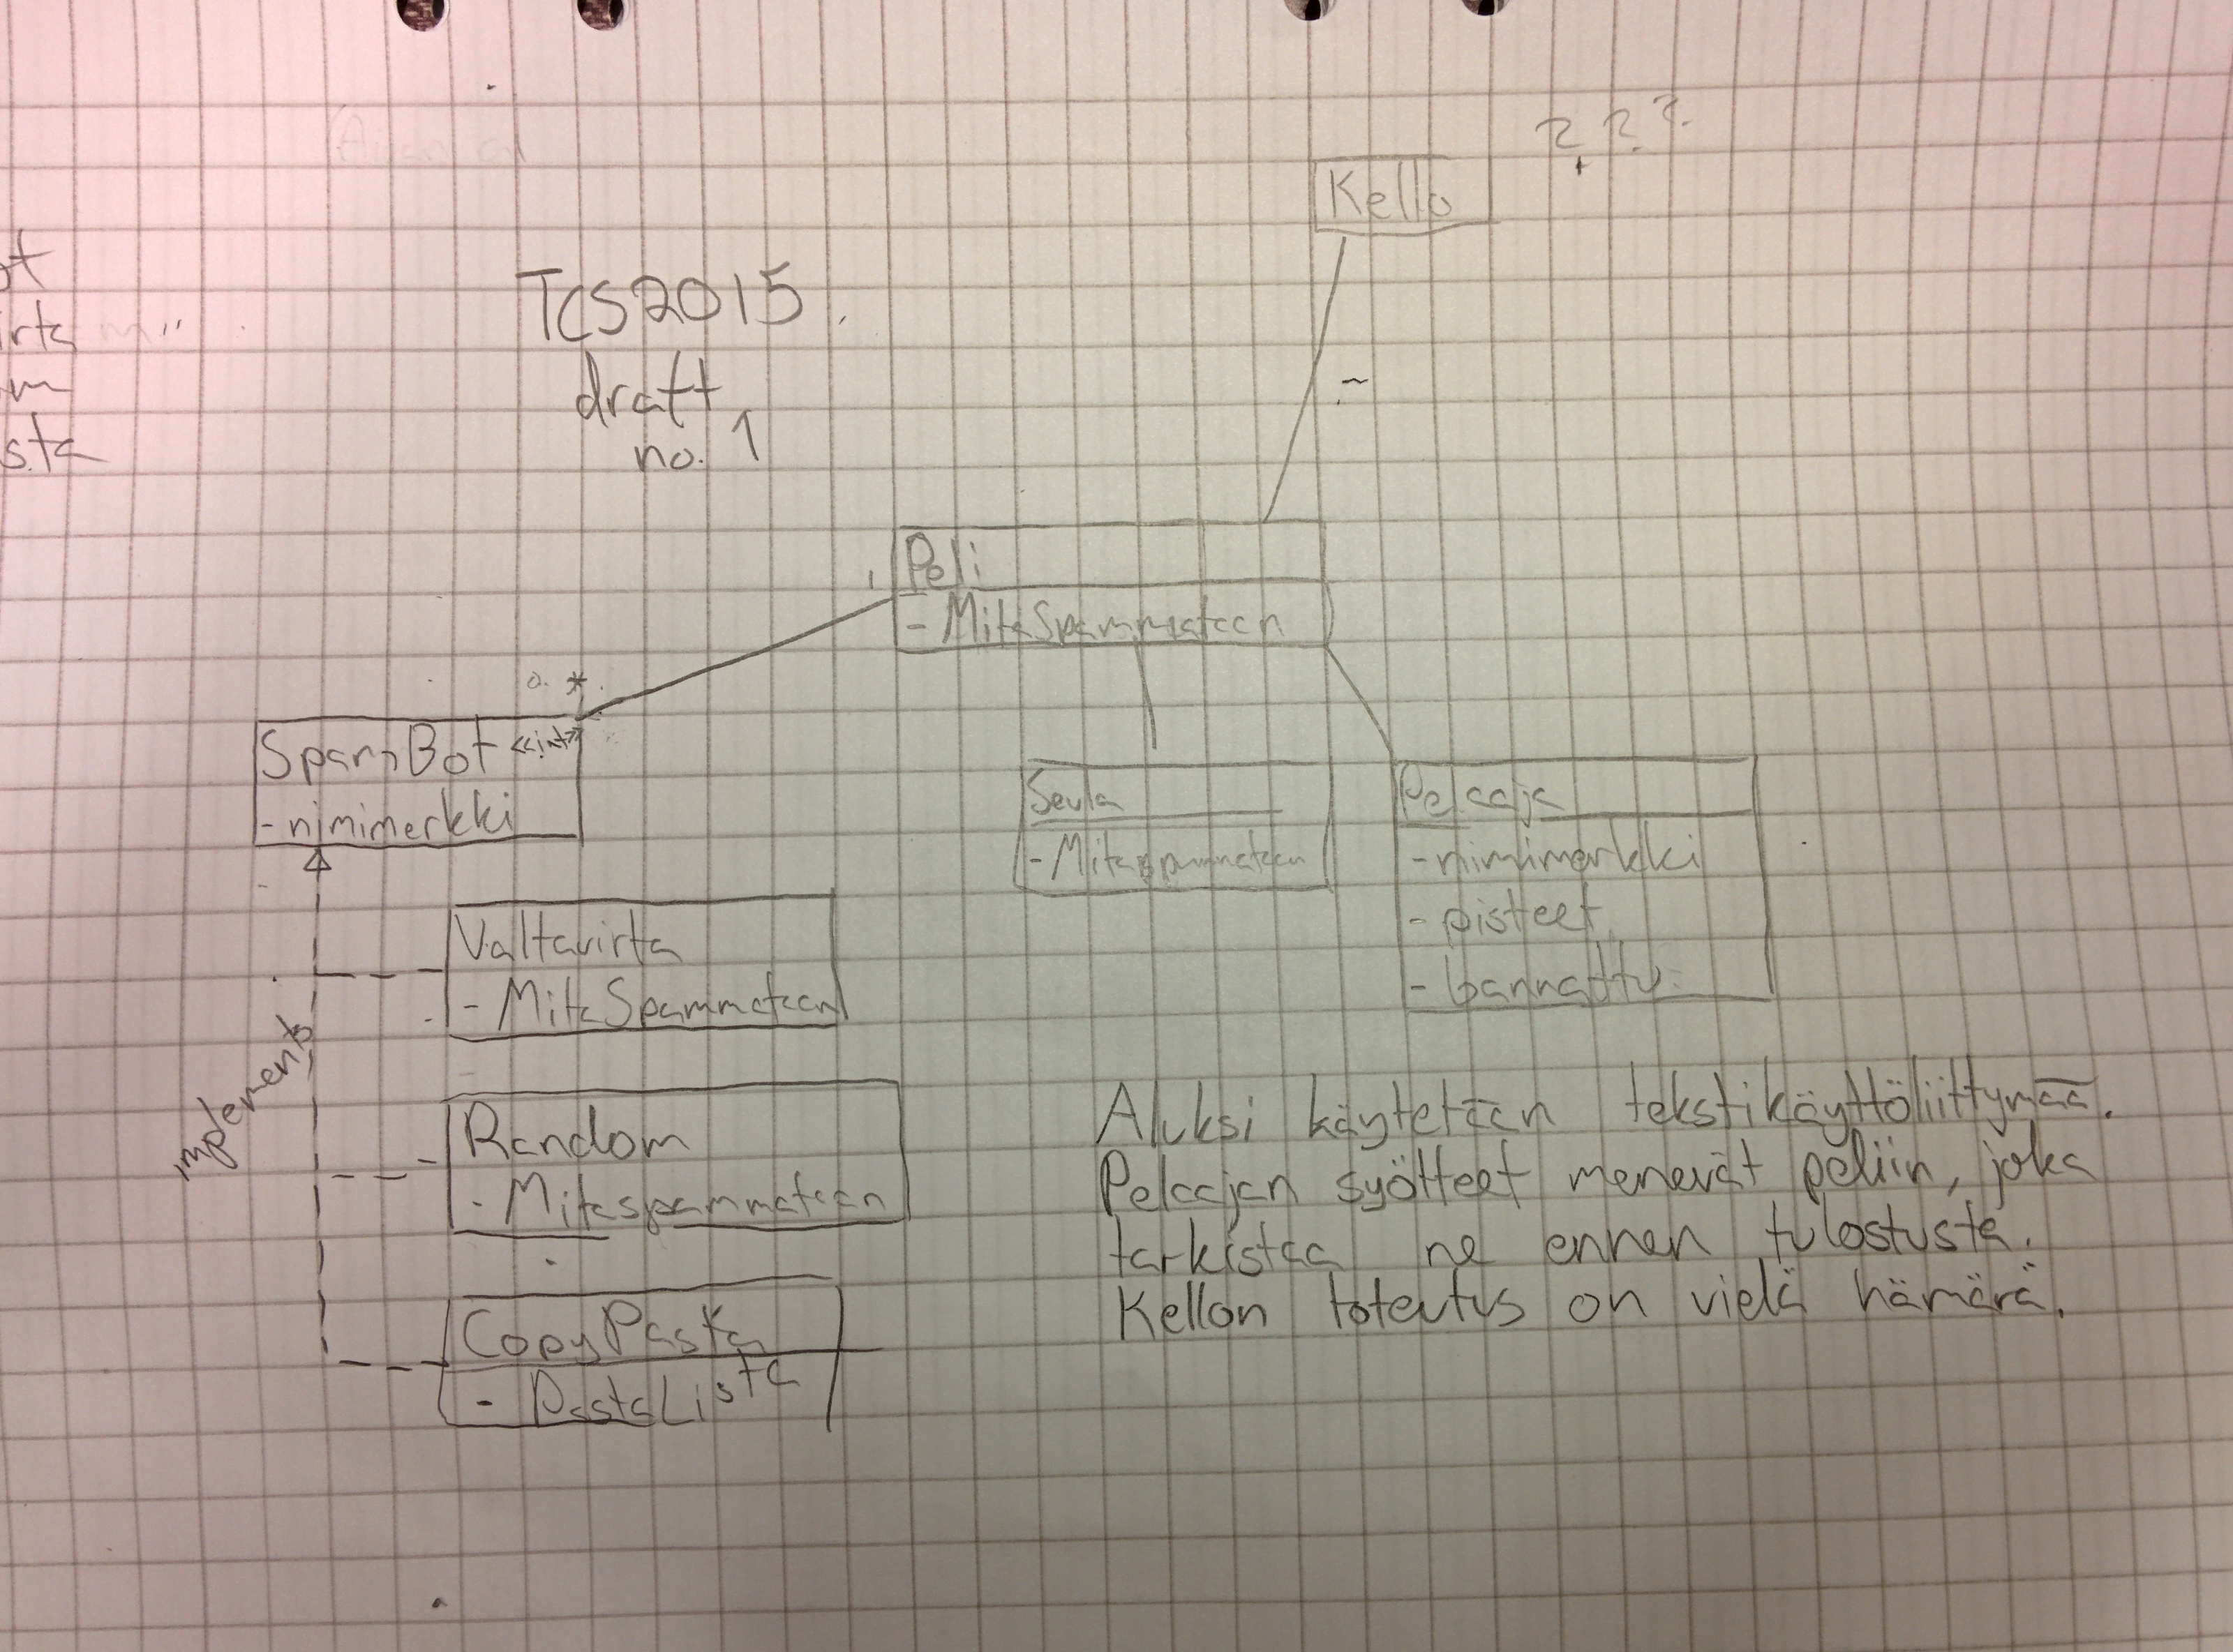 ???
Kello
TCS2015
draft
no. 1
Peli
- MitaSpammataan
1
0..*
SpamBot <<int>>
- nimimerkki
Seula
- Mitaspammataan
Pelaaja
- nimimerkki
- pisteet
- bannattu
Valtavirta
- MitaSpammataan
implements
Random
- Mitaspammataan
CopyPasta
- PastaLista
Aluksi käytetään tekstikäyttöliittymää.
Pelaajan syötteet menevät peliin, joka
tarkistaa ne ennen tulostusta.
Kellon toteutus on vielä hämärä.